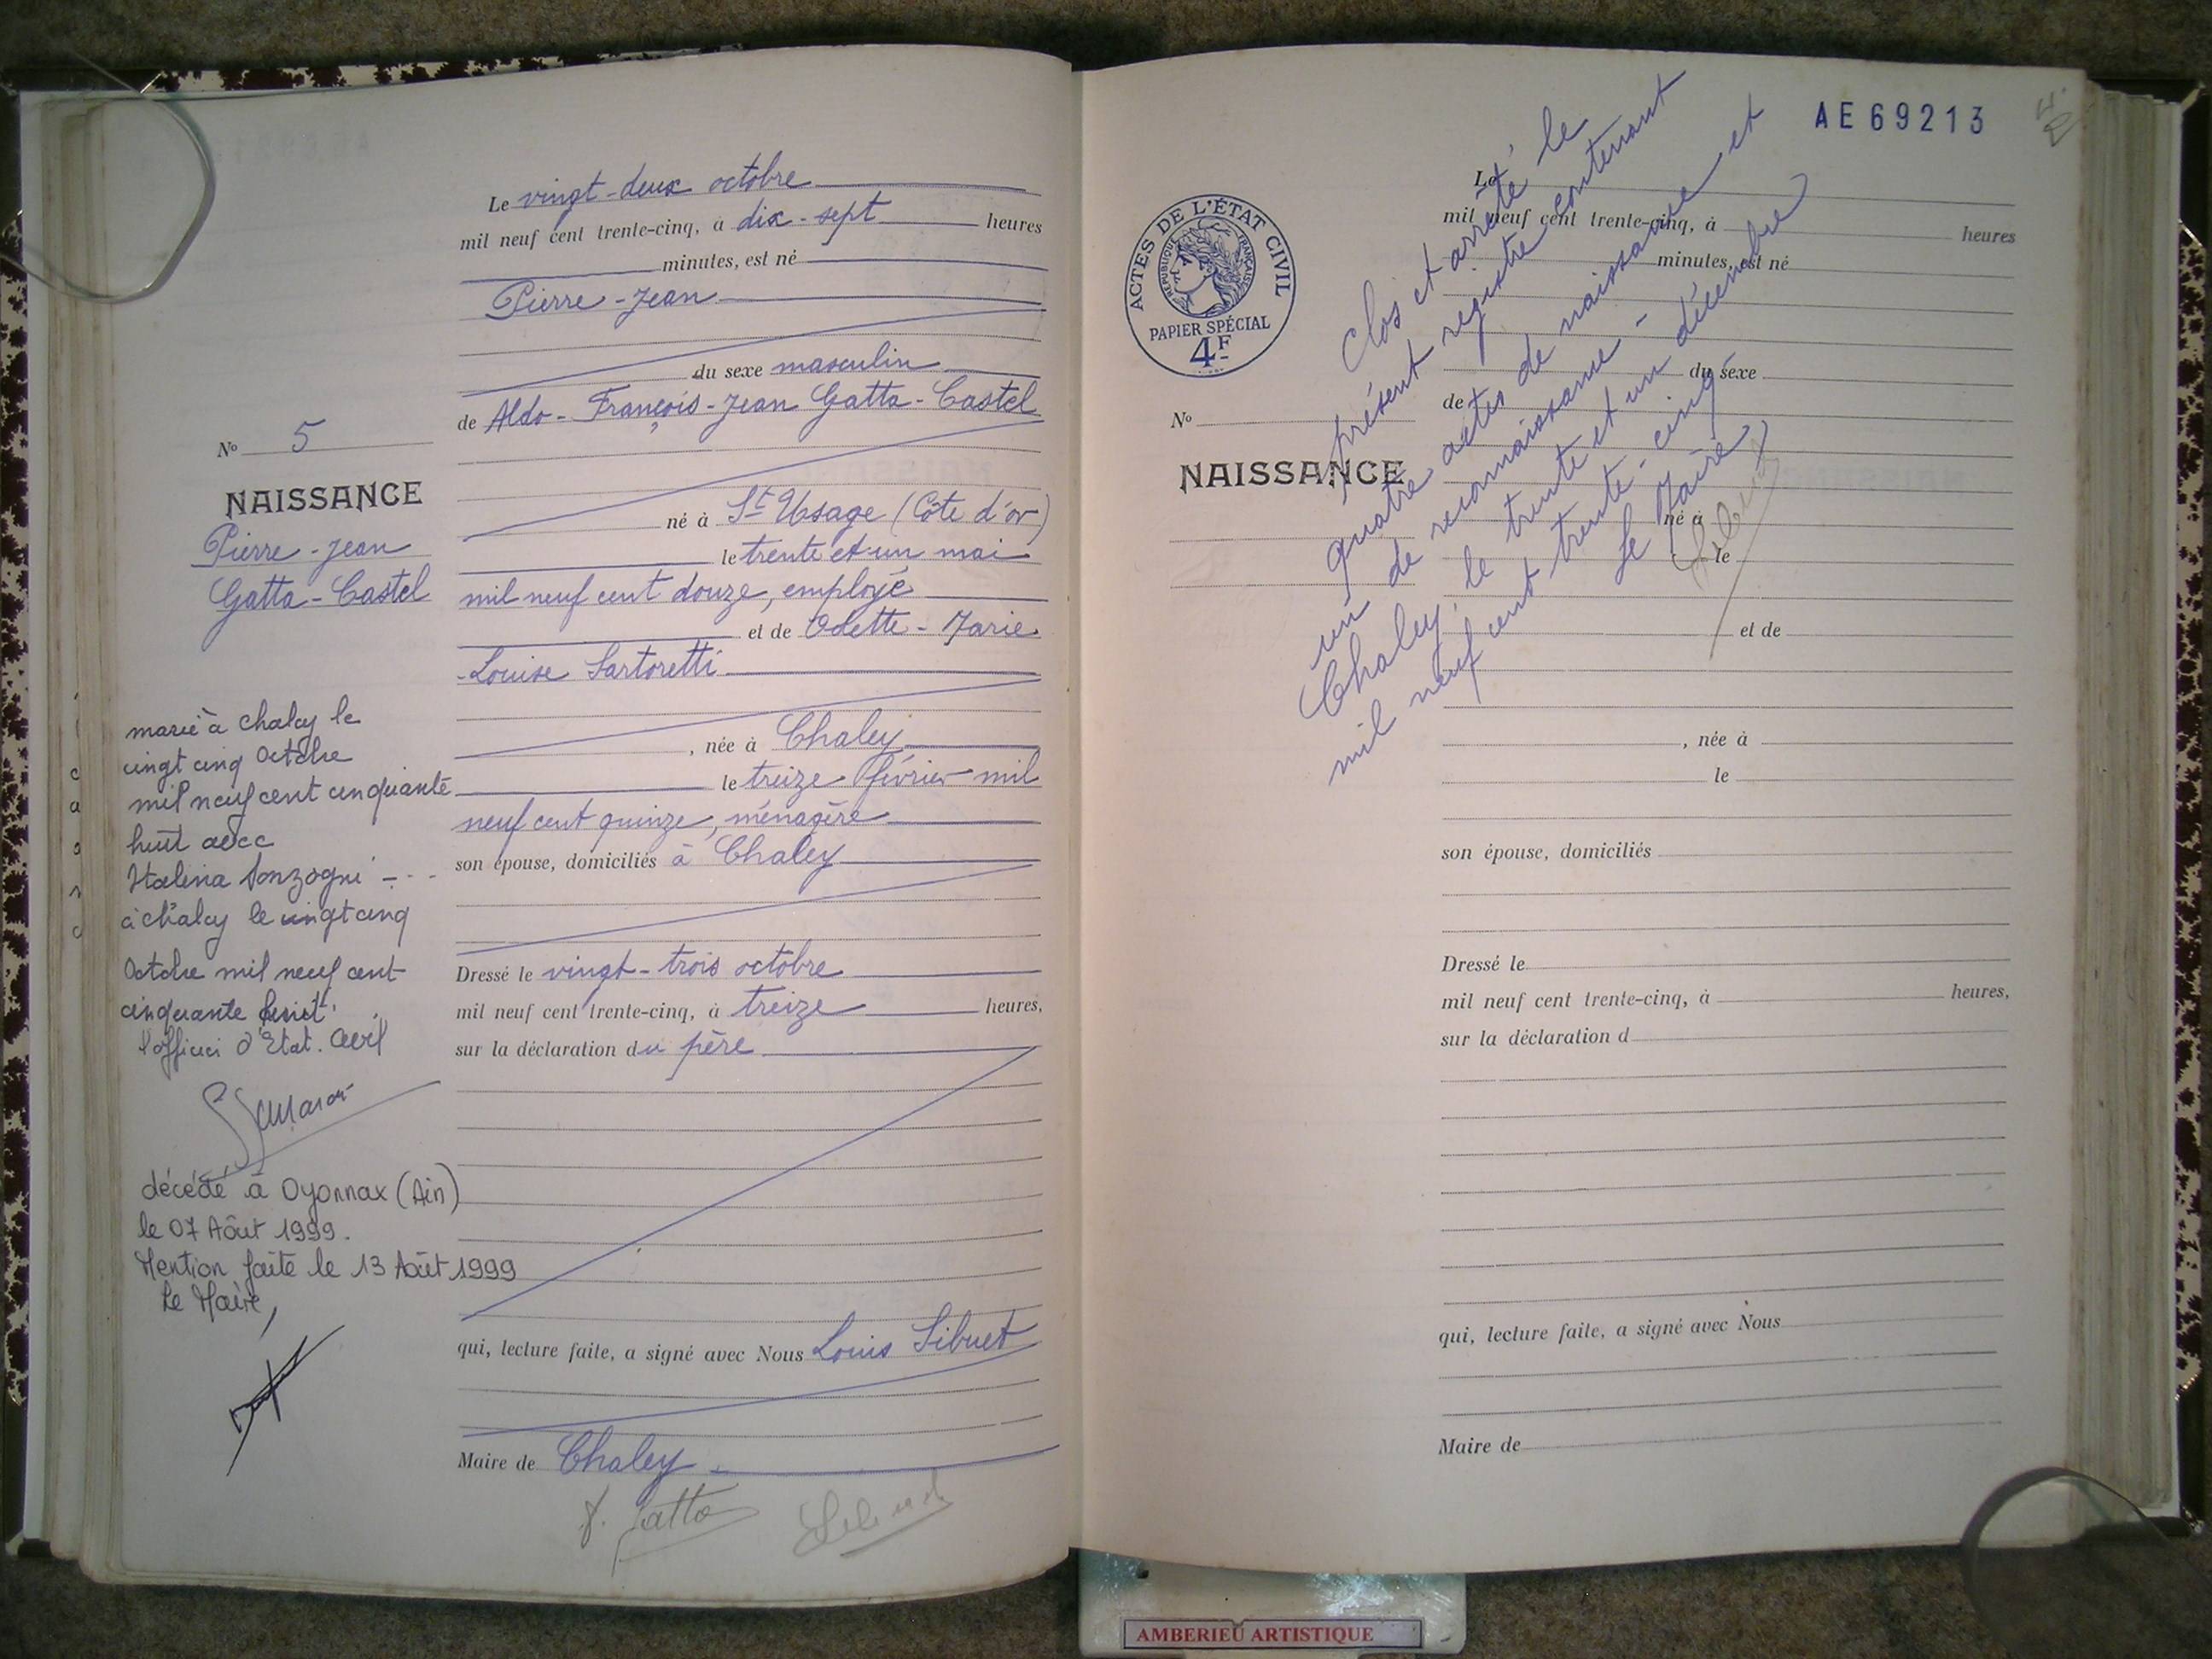 Le vingt-deux octobre
mil neuf cent trente-cinq, à dix-sept heures
minutes, est né
Pierre-Jean
du sexe masculin
de Aldo-François-Jean Gatta-Castel
né à St Usage (Côte d'or)
le trente et un mai
mil neuf cent douze, employé
et de Odette-Marie
-Louise Sartoretti
, née à Chaley
le treize février mil
neuf cent quinze, ménagère
son épouse, domiciliés à Chaley
Dressé le vingt-trois octobre
mil neuf cent trente-cinq, à treize heures,
sur la déclaration du père
qui, lecture faite, a signé avec Nous Louis Sibuet
Maire de Chaley
Gatta
No 5
NAISSANCE
Pierre-Jean
Gatta-Castel
marié à Chaley le
vingt cinq Octobre
mil neuf cent cinquante
huit avec
Sonzogni
à Chaley le vingt cinq
Octobre mil neuf cent
cinquante huit
l'officier d'Etat. Civil
décédé à Oyonnax (Ain)
le 07 Août 1999.
Mention faite le 13 Août 1999
Le Maire,
AE69213
ACTES DE L'ÉTAT CIVIL
RÉPUBLIQUE FRANÇAISE
PAPIER SPÉCIAL
4F
No
NAISSANCE
Le
mil neuf cent trente-cinq, à heures
minutes, est né
du sexe
de
né à
le
et de
, née à
le
son épouse, domiciliés
Dressé le
mil neuf cent trente-cinq, à heures,
sur la déclaration d
qui, lecture faite, a signé avec Nous
Maire de
Clos et arrêté le
présent registre contenant
quatre actes de naissance et
un de reconnaissance -
Chaley, le trente et un décembre
mil neuf cent trente-cinq
Le Maire,
AMBERIEU ARTISTIQUE